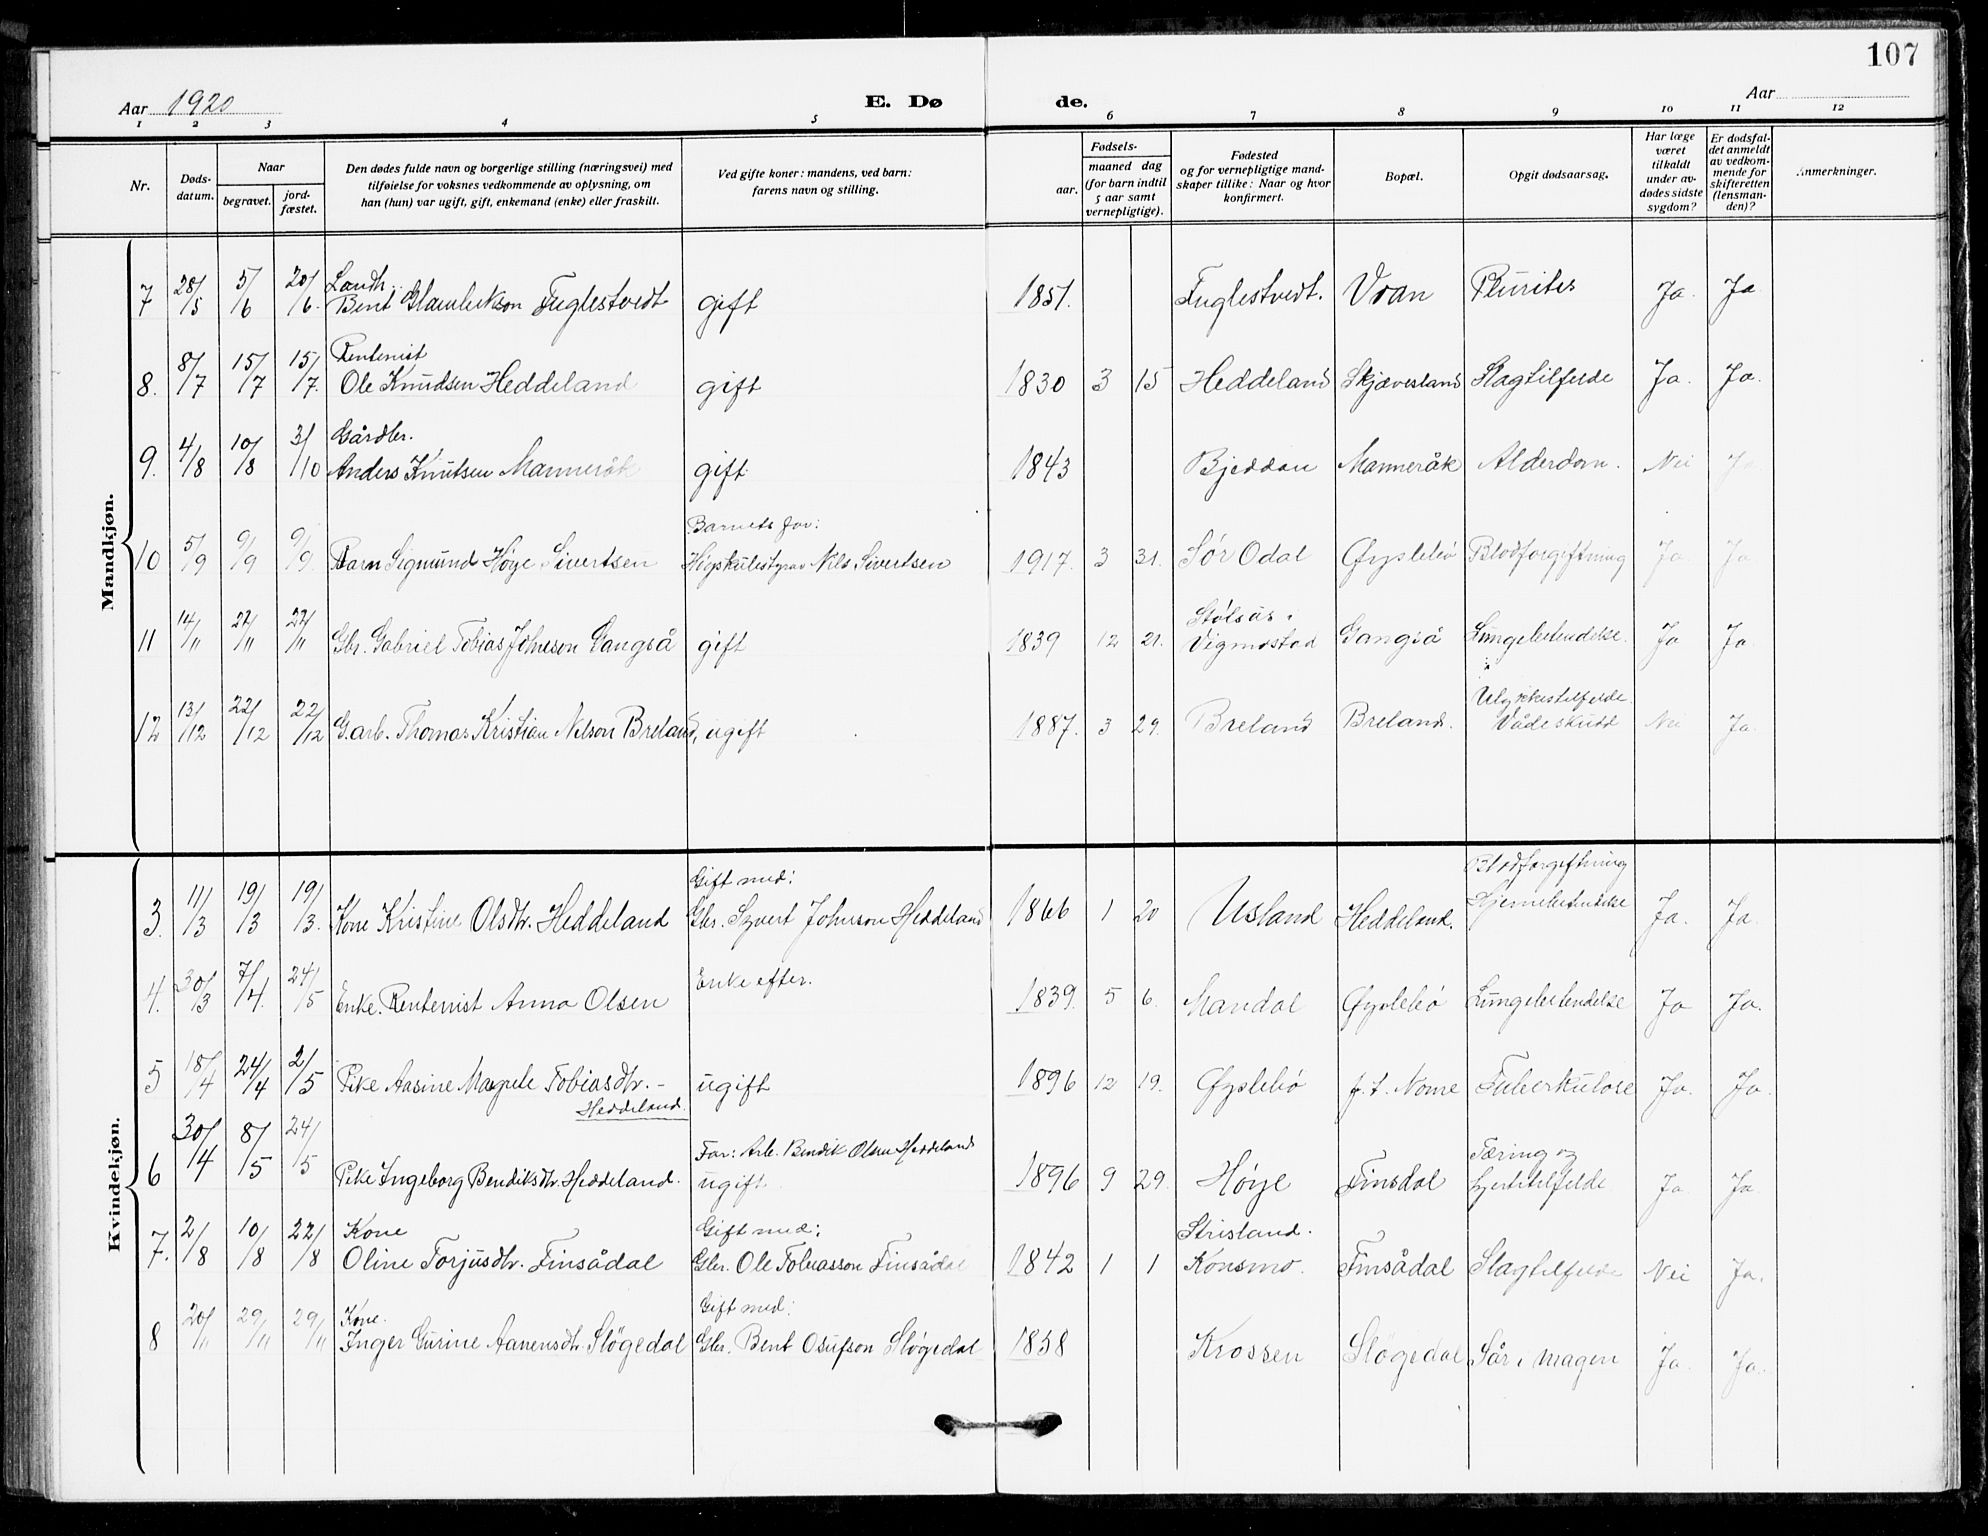 107
Aar 1920
E. Dø
de.
Aar
1 2 3 4 5 6 7 8 9 10 11 12
Nr.
Døds-
datum.
Naar
begravet.
jord-
fæstet.
Den dødes fulde navn og borgerlige stilling (næringsvei) med
tilføielse for voksnes vedkommende av oplysning, om
han (hun) var ugift, gift, enkemand (enke) eller fraskilt.
Ved gifte koner: mandens, ved barn:
farens navn og stilling.
Fødsels-
aar.
maaned dag
(for barn indtil
5 aar samt
vernepligtige).
Fødested
og for vernepligtige mand-
skaper tillike: Naar og hvor
konfirmert.
Bopæl.
Opgit dødsaarsag.
Har læge
været
tilkaldt
under av-
dødes sidste
sygdom?
Er dødsfal-
det anmeldt
av vedkom-
mende for
skifteretten
(lensman-
den)?
Anmerkninger.
Mandkjøn.
7 28/5 5/6 20/6. Bent Fuglestvedt gift 1851. Fuglestvedt. Vran Plurites Ja. Ja
Rentenist
8. 8/7 15/7 15/7. Ole Knudsen Heddeland gift 1830 3 15 Heddeland Skjævesland Slagtilfelde Ja. Ja.
Gårdbr.
9. 4/8 10/8 3/10 Anders Knutsen Manneråk gift 1843 Bjeddan Manneråk Alderdom. Nei Ja
Barnets far:
10 5/9 9/9 9/9. Barn Sigmund Høye Sivertsen Nils Sivertsen 1917. 3 31. Sør Odal Øyslebø Blodforgiftning Ja Ja
Stølsås i
11 14/11 22/11 22/11 Gbr. Gabriel Tobias Johnson Gangså gift 1839 12 21. Vigmostad Gangså Lungebetendelse. Ja Ja
Ulykkestilfelde.
12 13/12 22/12 22/12 Garb. Thomas Kristian Nilson Breland, ugift 1887. 3 29. Breland Breland. Vådeskudd Nei Ja.
Kvindekjøn.
Gift med: Blodforgiftning
3. 11/3 19/3 19/3. Kone Kristine Olsdtr. Heddeland Gbr. Syvert Johnson Heddeland 1866 1 20 Usland Heddeland. Hjernebetendelse Ja. Ja.
Enke efter.
4. 30/3 7/4. 24/5 Enke. Rentenist Anna Olsen 1839. 5 6. Mandal Øyslebø Lungebetendelse Ja Ja.
5 18/4 24/4 2/5 Pike Aasine Tobiasdtr. – ugift 1896 12 19. Øyslebø f.t. Nome Tuberkulose Ja. Ja.
Heddeland.
Far: Arb. Bendik Olsen Heddeland Tæring og
6 30/4 8/5 24/5 Pike Ingeborg Bendiksdtr. Heddeland. ugift 1896 9 29. Høye Finsdal hjertetilfelde. Ja Ja
Kone Gift med: Strisland.
7. 2/8 10/8 22/8 Oline Torjusdtr. Finsådal Gbr. Ole Tobiasson Finsådal 1842 1 1 Konsmo. Finsådal Slagtilfelde Nei Ja.
Kone. Gift med:
8 20/11 29/11 29/11 Inger Gurine Aanensdtr. Sløgedal Gbr. Bent Osufson Sløgedal 1858 Krossen Sløgedal Sår i magen Ja. Ja.